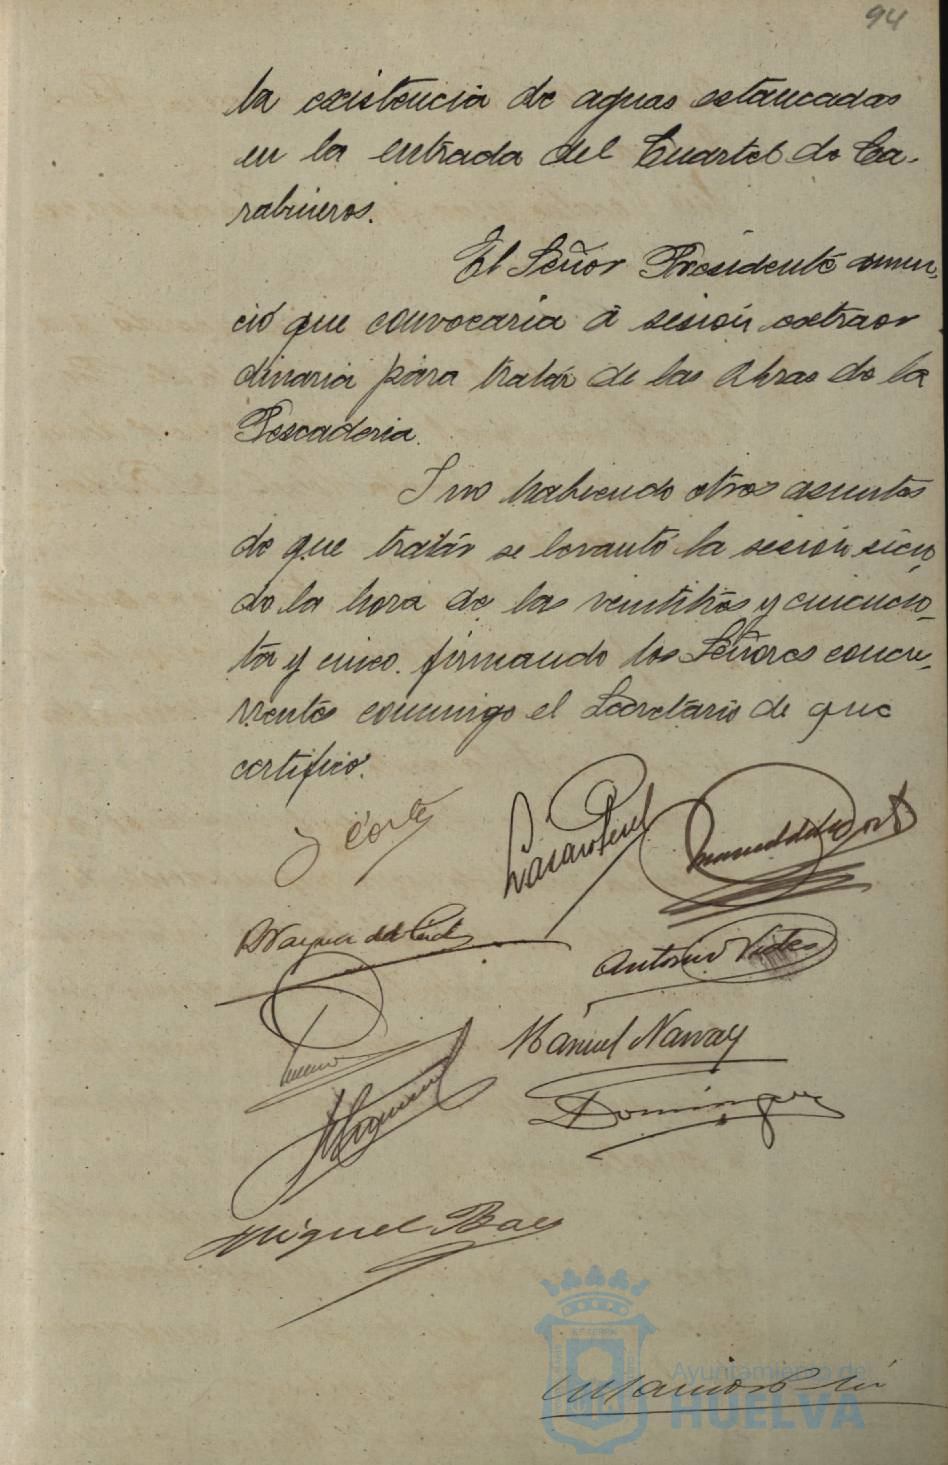 94
la existencia de aguas estancadas
en la entrada del Cuartel de Ca-
rabineros.
El Señor Presidente anun-
ció que convocaria á sesión extraor
dinaria para tratar de las Obras de la
Pescaderia.
I no habiendo otros asuntos
de que tratár se levantó la sesión sien-
do la hora de las veintitrés y cincuen-
ta y cinco. firmando los Señores concu-
rrentes conmigo el Secretario de que
certifico.
Antonio Vides
Manuel Narvay
Dominguez
Miguel Baez
Ayuntamiento de
HUELVA